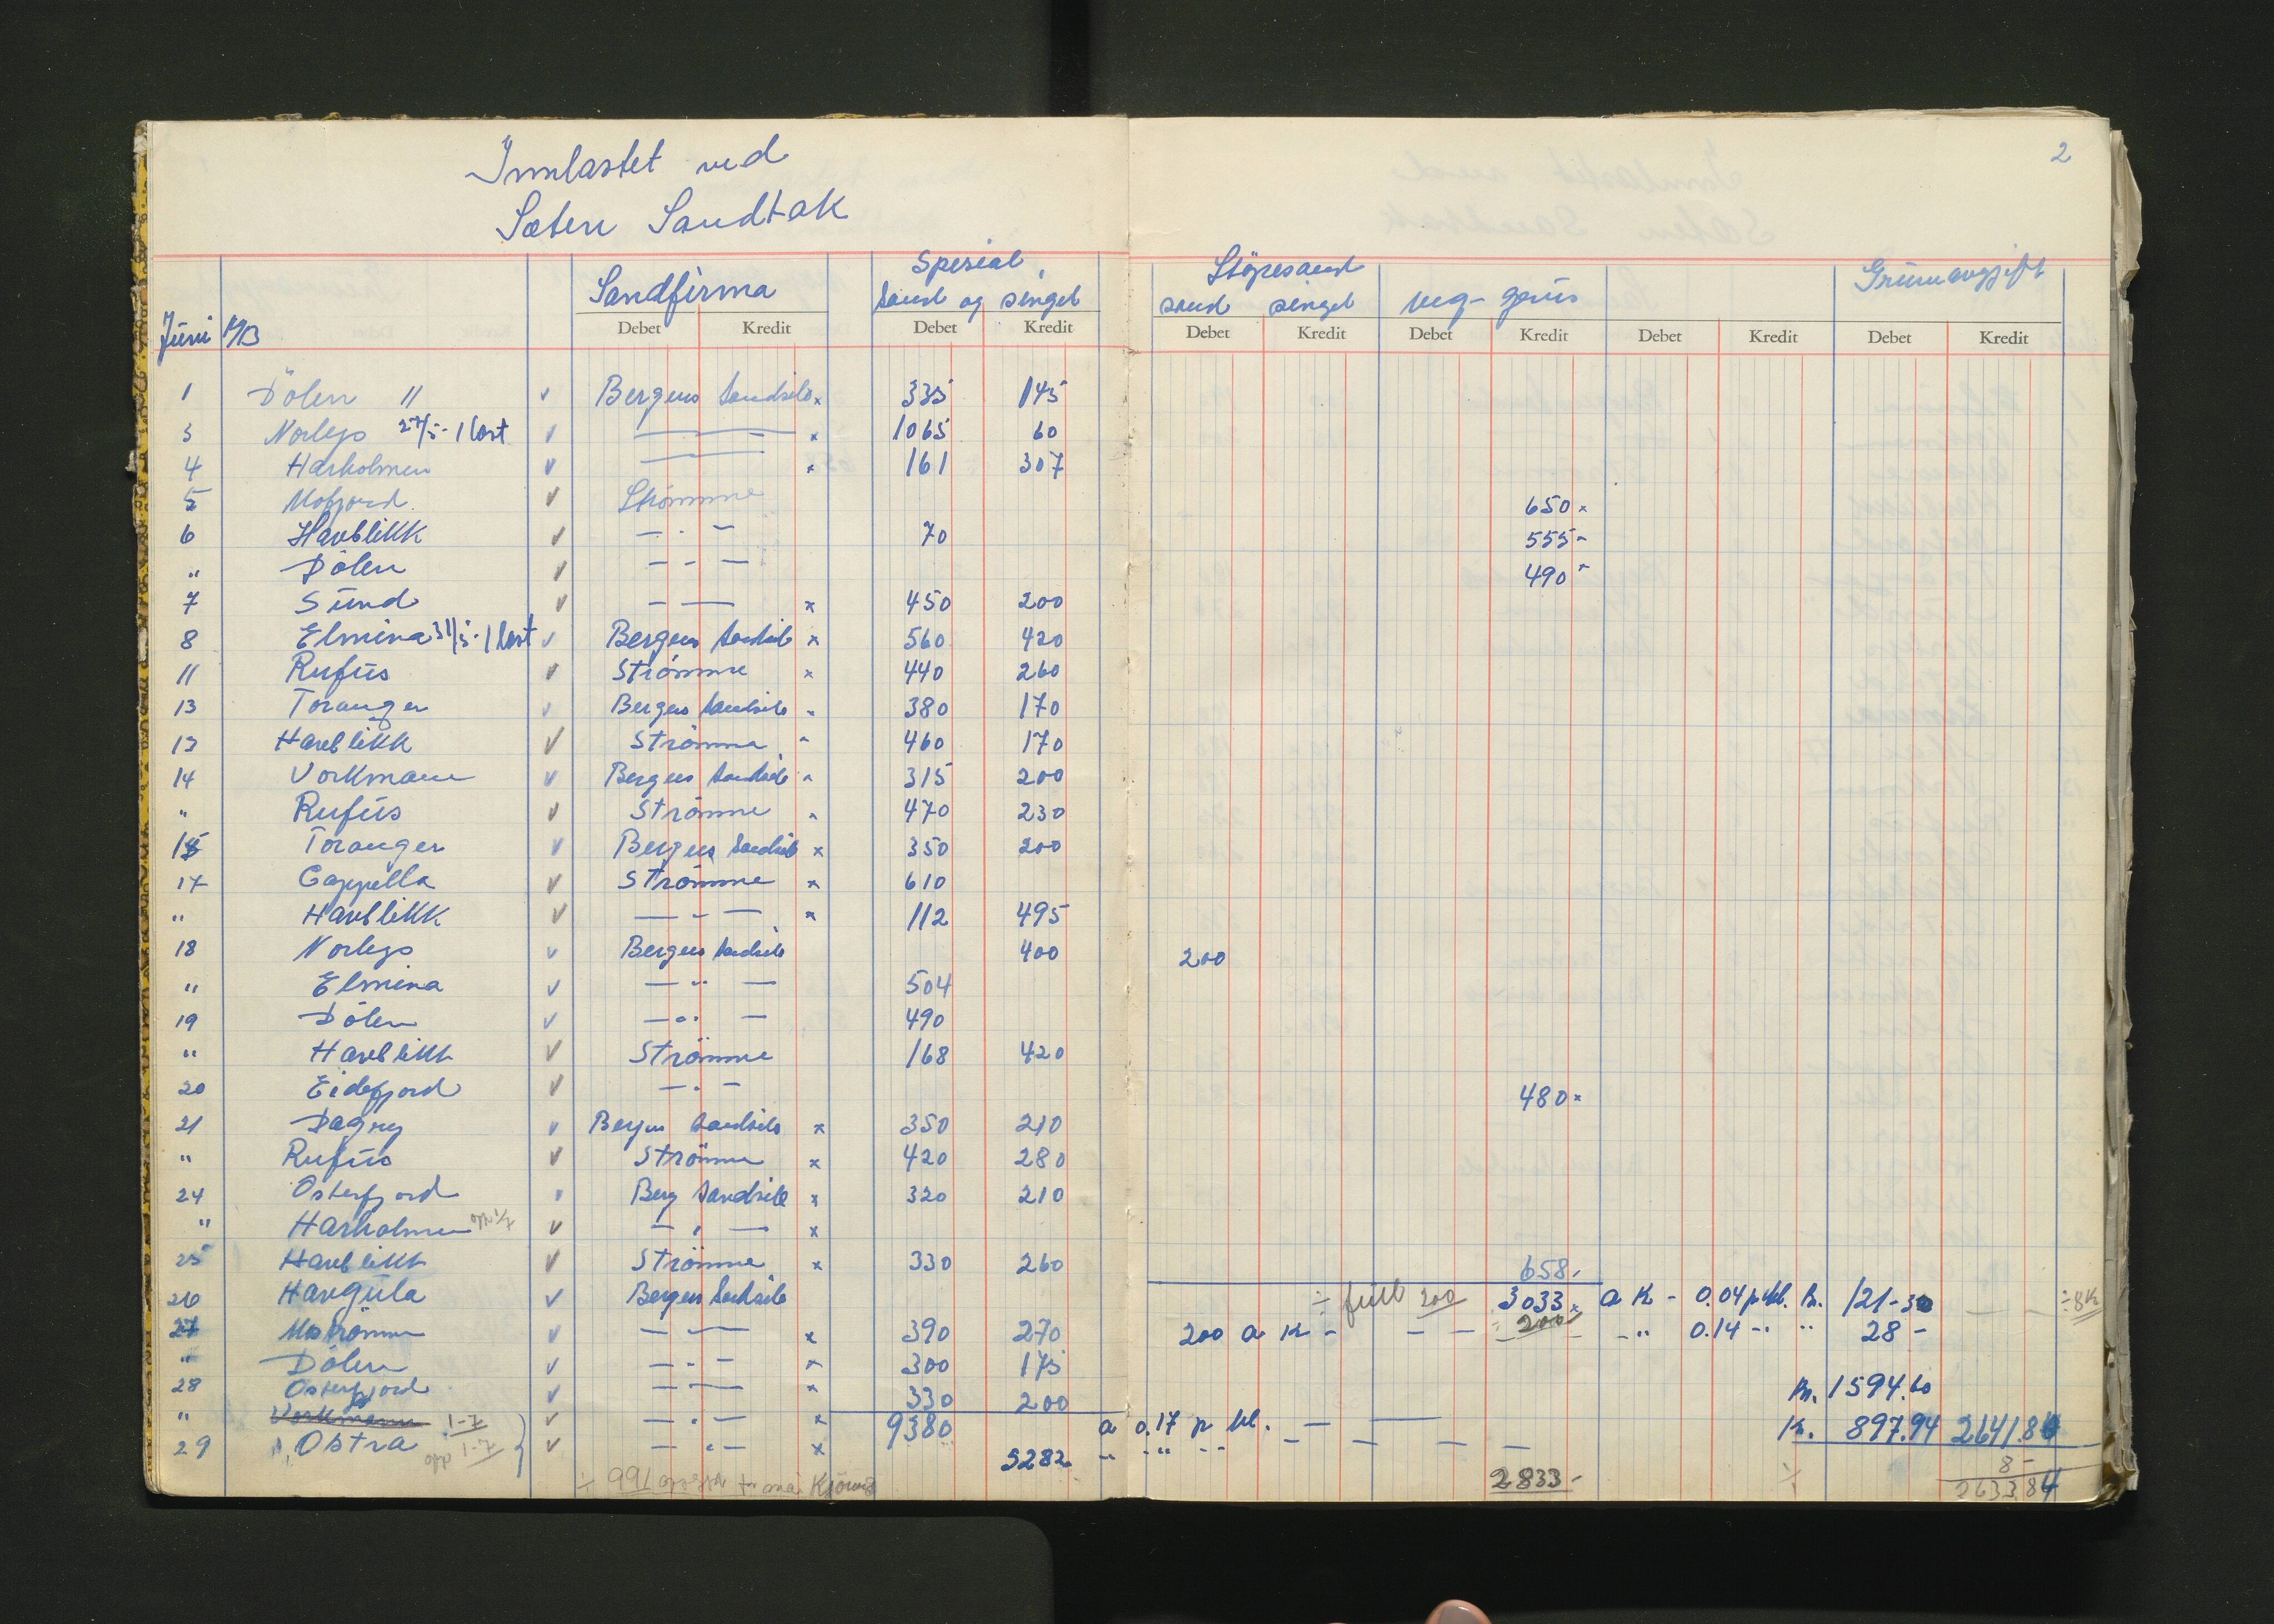 2
Innlastet ved
Sæten Sandtak
Sandfirma
Spesial
Sand og singel
Støpesand
sand singel
veg- grus
Grunnavgift
Juni M/B
Debet Kredit Debet Kredit Debet Kredit Debet Kredit Debet Kredit Debet Kredit
1 Dölen " v Bergens Sandsilo x 335 145
3 Norleys 27/5- 1 last v — — x 1065 60
4 Harholmen v — x 161 307
5 Mofjord v Strömme 650 x
6 Havblikk v — - — 70 555 -
" Dölen v — - — 490 -
7 Sund v — — x 450 200
8 Elmina 31/5- 1 last v Bergens Sandsilo x 560 420
11 Rufus v Strömme x 440 260
13 Toranger v Bergens Sandsilo - 380 170
13 Havblikk v Strömme - 460 170
14 Vorkmann v Bergens Sandsilo - 315 200
" Rufus v Strömme - 470 230
15 Toranger v Bergens Sandsilo x 350 200
17 Cappella v Strömme x 610
" Havblikk v — - — x 112 495
18 Norleys v Bergens Sandsilo 400 200
" Elmina v — " — 504
19 Dölen v — " — 490
" Havblikk v Strömme 168 420
20 Eidefjord v — - — 480 x
21 Dagny v Bergens Sandsilo x 350 210
" Rufus v Strömme x 420 280
24 Osterfjord v Berg Sandsilo x 320 210
" Harholmen v — " — x
25 Havblikk v Strömme x 330 260 658 -
26 Havgula v Bergens Sandsilo ÷ full 200 3033 x a K - 0.04 p hl. Kr. 121-32 — — ÷ 8 K
27 v — — x 390 270 200 a K - — — ÷ 200 — " 0.14 - " " 28 -
" Dölen v — - — x 300 175
28 Osterfjord v — — x 330 200 Kr. 1594.60
" Vorkmann 1-7 v — - — x 9380 a 0.17 p hl. — — Kr. 897.94 2641.86
29 " Ostra 1-7 v — - — x 5282 - " " - - — — — — 8 -
÷ 2833 - ÷ 2633.84